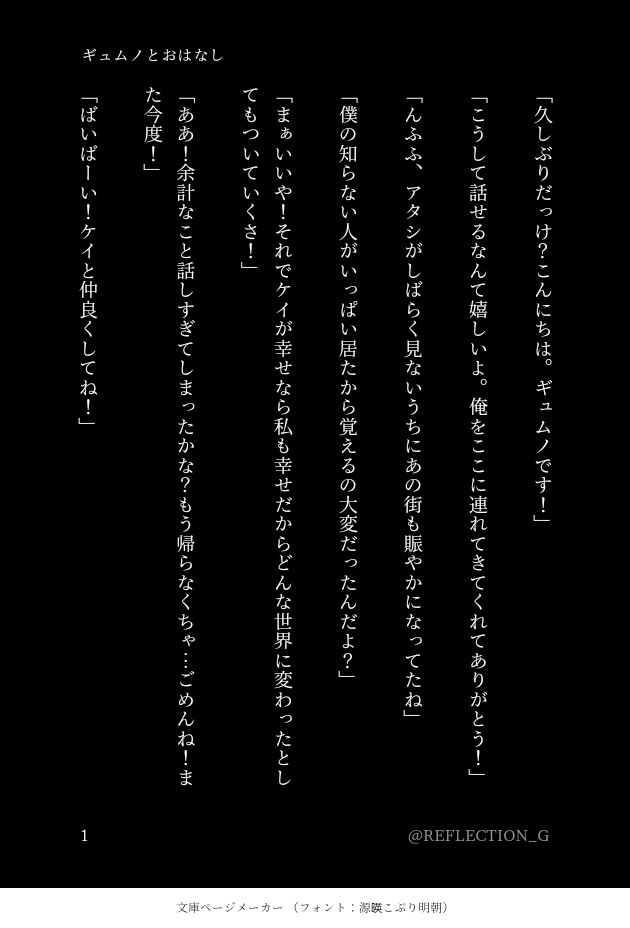 ギュムノとおはなし
「久しぶりだっけ？こんにちは。ギュムノです！」
「こうして話せるなんて嬉しいよ。俺をここに連れてきてくれてありがとう！」
「んふふ、アタシがしばらく見ないうちにあの街も賑やかになってたね」
「僕の知らない人がいっぱい居たから覚えるの大変だったんだよ？」
「まぁいいや！それでケイが幸せなら私も幸せだからどんな世界に変わったとし
てもついていくさ！」
「ああ！余計なこと話しすぎてしまったかな？もう帰らなくちゃ…ごめんね！ま
た今度！」
「ばいばーい！ケイと仲良くしてね！」
1
@REFLECTION_G
文庫ページメーカー （フォント：源暎こぶり明朝）